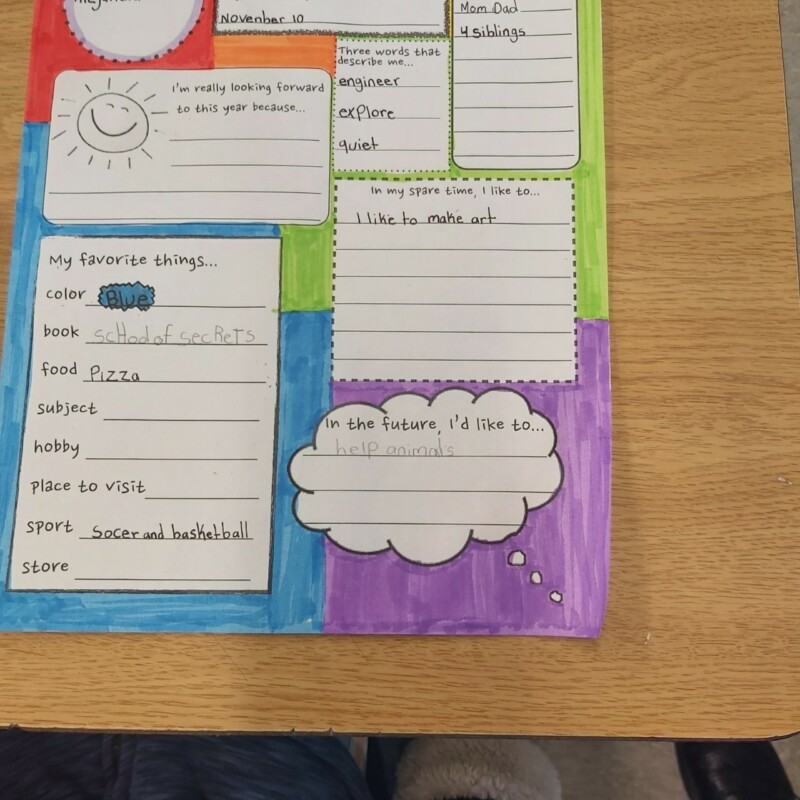 November 10
Mom Dad
4 siblings
Three words that
describe me...
engineer
explore
quiet
I'm really looking forward
to this year because...
In my spare time, I like to...
I like to make art
My favorite things...
color Blue
book scHool of secReTs
food Pizza
subject
hobby
place to visit
sport Socer and basketball
store
In the future, I'd like to...
help animals